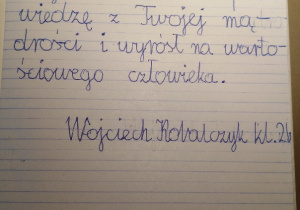 wiedzę z Twojej mą-
drości i wyrósł na warto-
ściowego człowieka.
Wojciech Kowalczyk kl. 2b